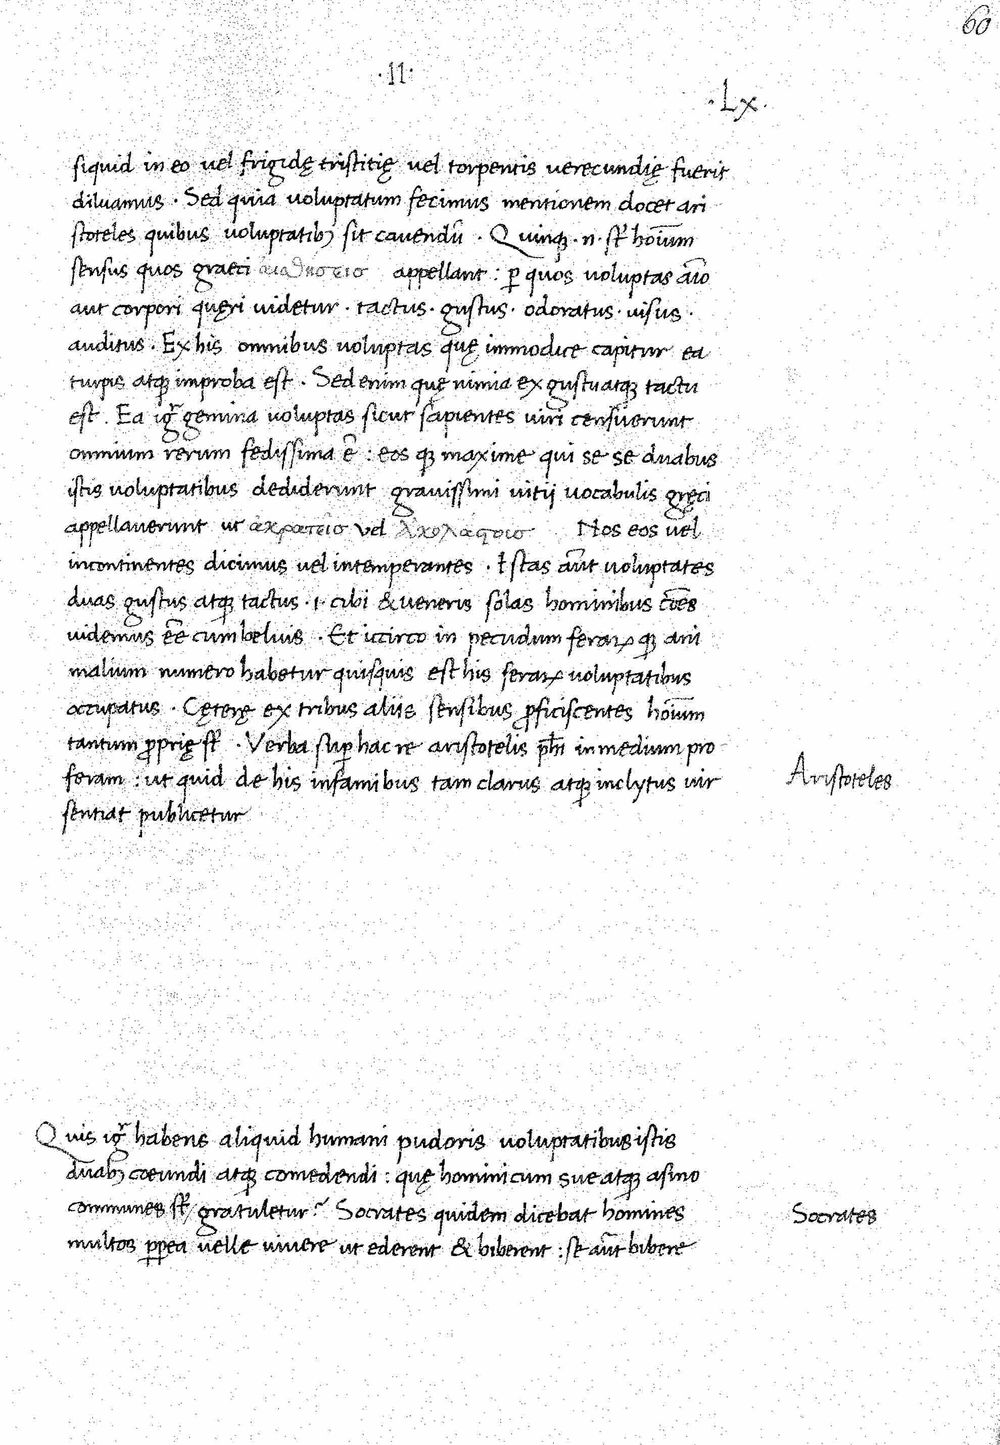 60
·II·
·Lx·
siquid in eo vel frigidę tristitię vel torpentis verecundię fuerit
diluamus · Sed quia voluptatum fecimus mentionem docet ari
stoteles quibus voluptatibꝫ sit cavendū · Quinqꝫ · n · st̄ hoīum
sensus quos graeci αιαθησεισ appellant : ꝑ quos voluptas aīo
aut corpori quęri videtur · tactus · gustus · odoratus · visus ·
auditus · Ex his omnibus voluptas quę immodice capitur ea
turpis atqꝫ improba est · Sed enim quę nimia ex gustu atqꝫ tactu
est . Ea igr̄ gemina voluptas sicut sapientes viri censuerunt
omnium rerum fedissima ē : eos qꝫ maxime qui se se duabus
istis voluptatibus dediderunt gravissimi vitij vocabulis gręci
appellaverunt ut ἀκρατεῖσ vel ἀκολάστοισ Nos eos vel
incontinentes dicimus vel intemperantes · Istas aūt voluptates
duas gustus atqꝫ tactus · i · cibi & veneris solas hominibus cōēs
videmus eē cum beluis · Et iccirco in pecudum feraꝝ qꝫ ani
malium numero habetur quisquis est his feraꝝ voluptatibus
occupatus · Cęterę ex tribus aliis sensibus ꝓficiscentes hoīum
tantum ꝓprię st̄ · Verba suꝑ hac re aristotelis pħi in medium pro
feram : ut quid de his infamibus tam clarus atqꝫ inclytus vir
sentiat publicetur
Aristoteles
Quis igr̄ habens aliquid humani pudoris voluptatibus istis
duabꝫ coeundi atqꝫ comedendi : quę homini cum sue atqꝫ asino
communes st̄ / gratuletur? Socrates quidem dicebat homines
multos ꝓpꝑea velle vivere ut ederent & biberent : se aūt bibere
Socrates